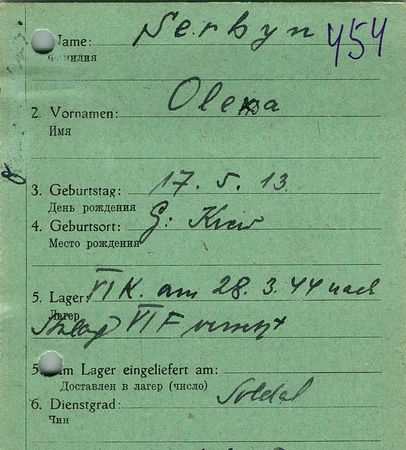 Name: Serbyn 454
Фамилия
2. Vornamen: Olexa
Имя
3. Geburtstag: 17. 5. 13.
День рождения
4. Geburtsort: G: Kiew
Место рождения
5. Lager: VI K. am 28. 3. 44 nach
Лагерь
Stalag VI F versetzt
5. im Lager eingeliefert am:
Доставлен в лагерь (число)
6. Dienstgrad: Soldat
Чин